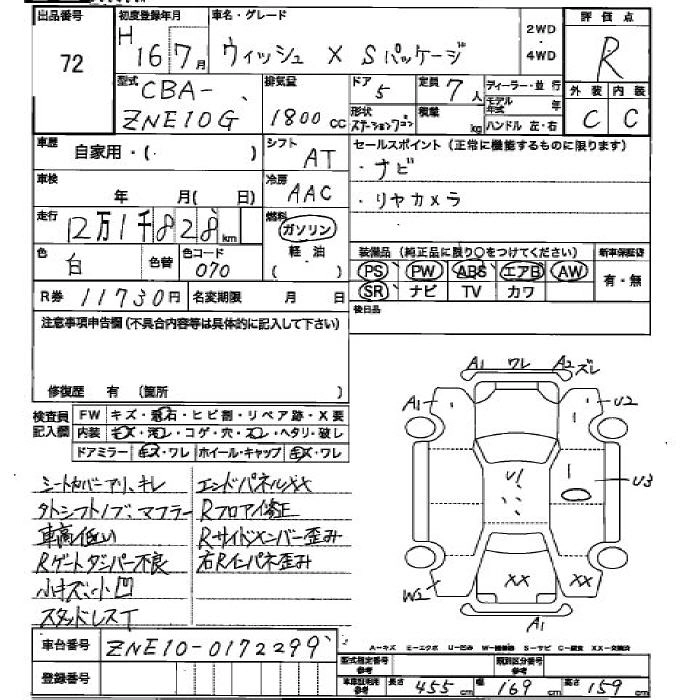 出品番号
72
初度登録年月
H 16 7月
車名・グレード
ウィッシュ X Sパッケージ
2WD
・
4WD
評価点
R
型式
CBA-
ZNE10G
排気量
1800 cc
ドア
5
定員 7人
ディーラー・並行
形状
ステーションワゴン
積載
kg
モデル年式 年
ハンドル 左・右
外装 内装
C C
車歴
自家用・( )
シフト
AT
セールスポイント (正常に機能するものに限ります)
・ナビ
・リヤカメラ
車検
年 月( 日)
冷房
AAC
走行
12万1千828km
燃料
ガソリン
軽油
( )
色
白
色替
色コード
070
装備品 (純正品に限り○をつけてください)
新車保証書
PS PW ABS エアB AW
有・無
SR ナビ TV カワ
R券 11730円
名変期限 月 日
後日品
注意事項申告欄(不具合内容等は具体的に記入して下さい)
修復歴 有 (箇所 )
検査員記入欄
FW キズ・飛石・ヒビ割・リペア跡・X要
内装 キズ・汚レ・コゲ・穴・スレ・ヘタリ・破レ
ドアミラー キズ・ワレ ホイール・キャップ キズ・ワレ
シートカバーアリ、キレ
タトシフトノブ、マフラー
車高低い
Rゲートダンパー不良
小キズ、小凹
スタッドレスT
エンドパネルXX
Rフロアイ修正
Rサイドメンバー歪み
右Rインパネ歪み
A1 ワレ A2 ズレ
A1
U2
U1
U3
XX
XX
W2
A1
車台番号
ZNE10-0172299
A-キズ E-エクボ U-凹み W-補修跡 S-サビ C-腐食 XX-交換済
登録番号
型式指定番号
参考
類別区分番号
参考
車庫証明用
参考
長さ 455cm
幅 169cm
高さ 159cm